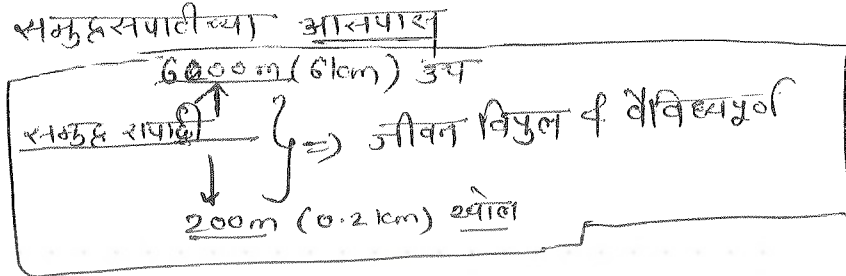 समुद्रसपाटीच्या आसपास
6000m (6km) उंच
समुद्र सपाटी } => जीवन विपुल व वैविध्यपूर्ण
200m (0.2 km) खोल